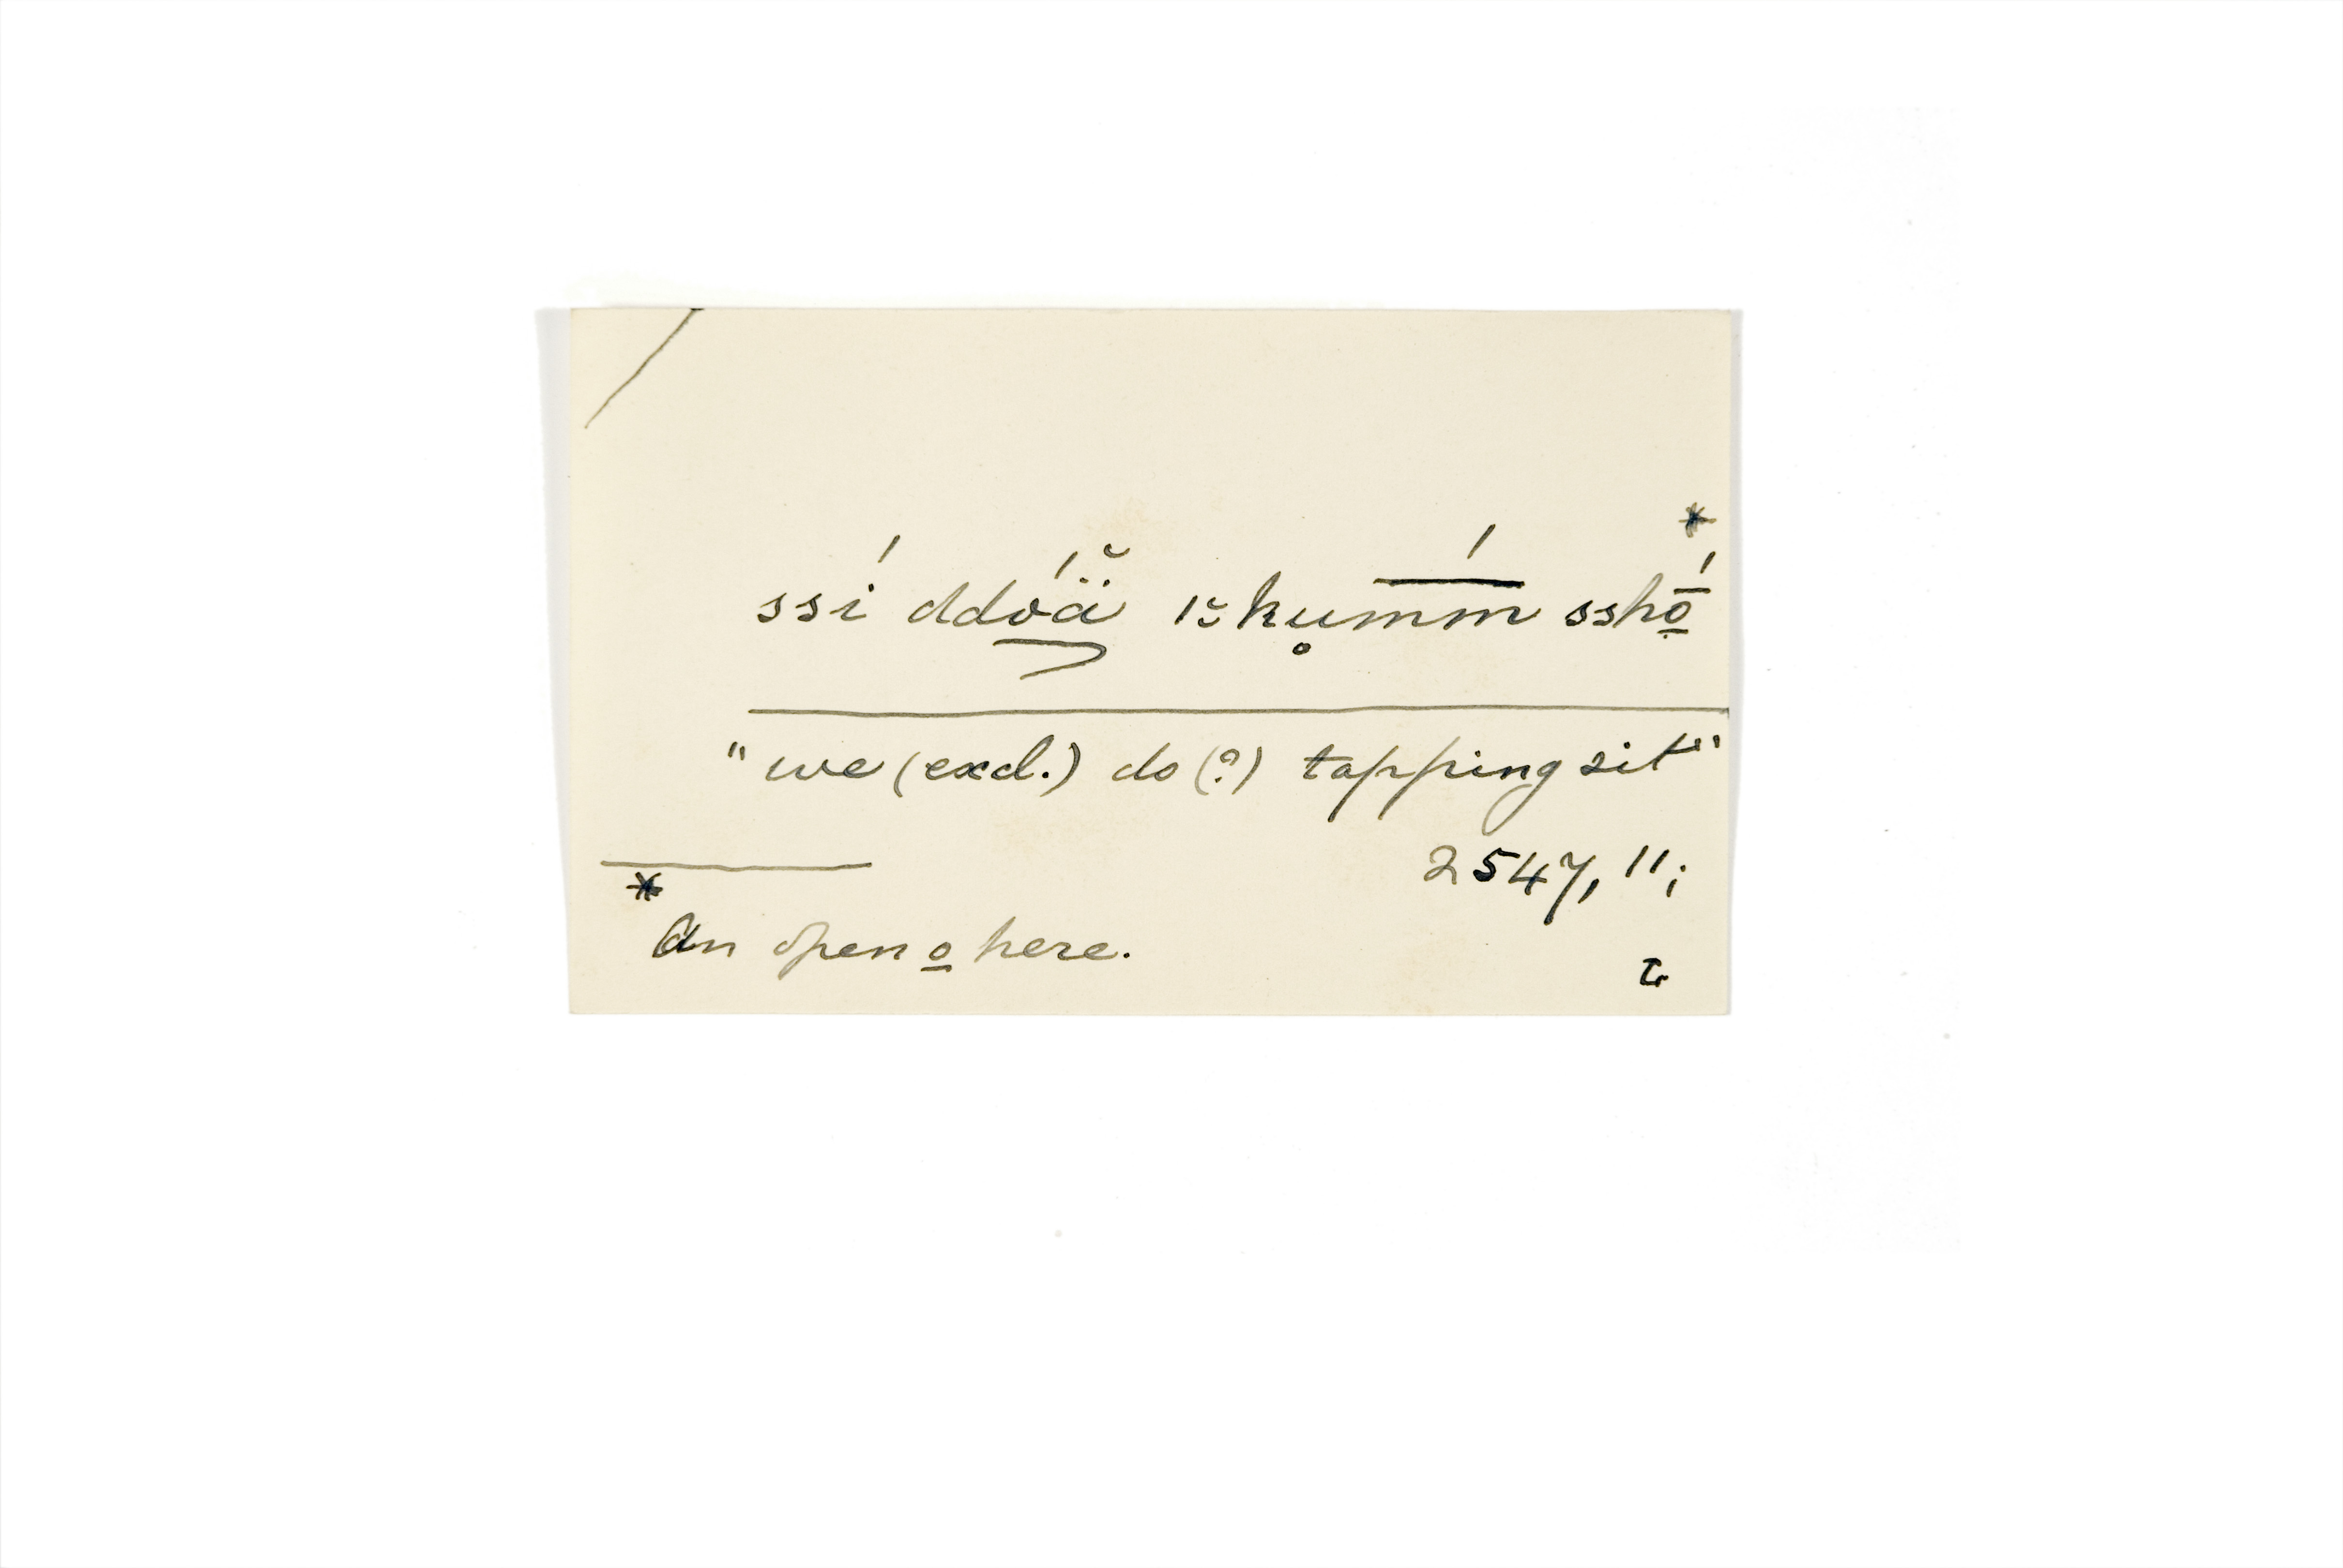 *
ssí ddóä̆ ıɔ̆kụm̅́m̅ sshṓ̱
"we (excl.) do (?) tapping sit"
2547, 11;
*
An open o̱ here.